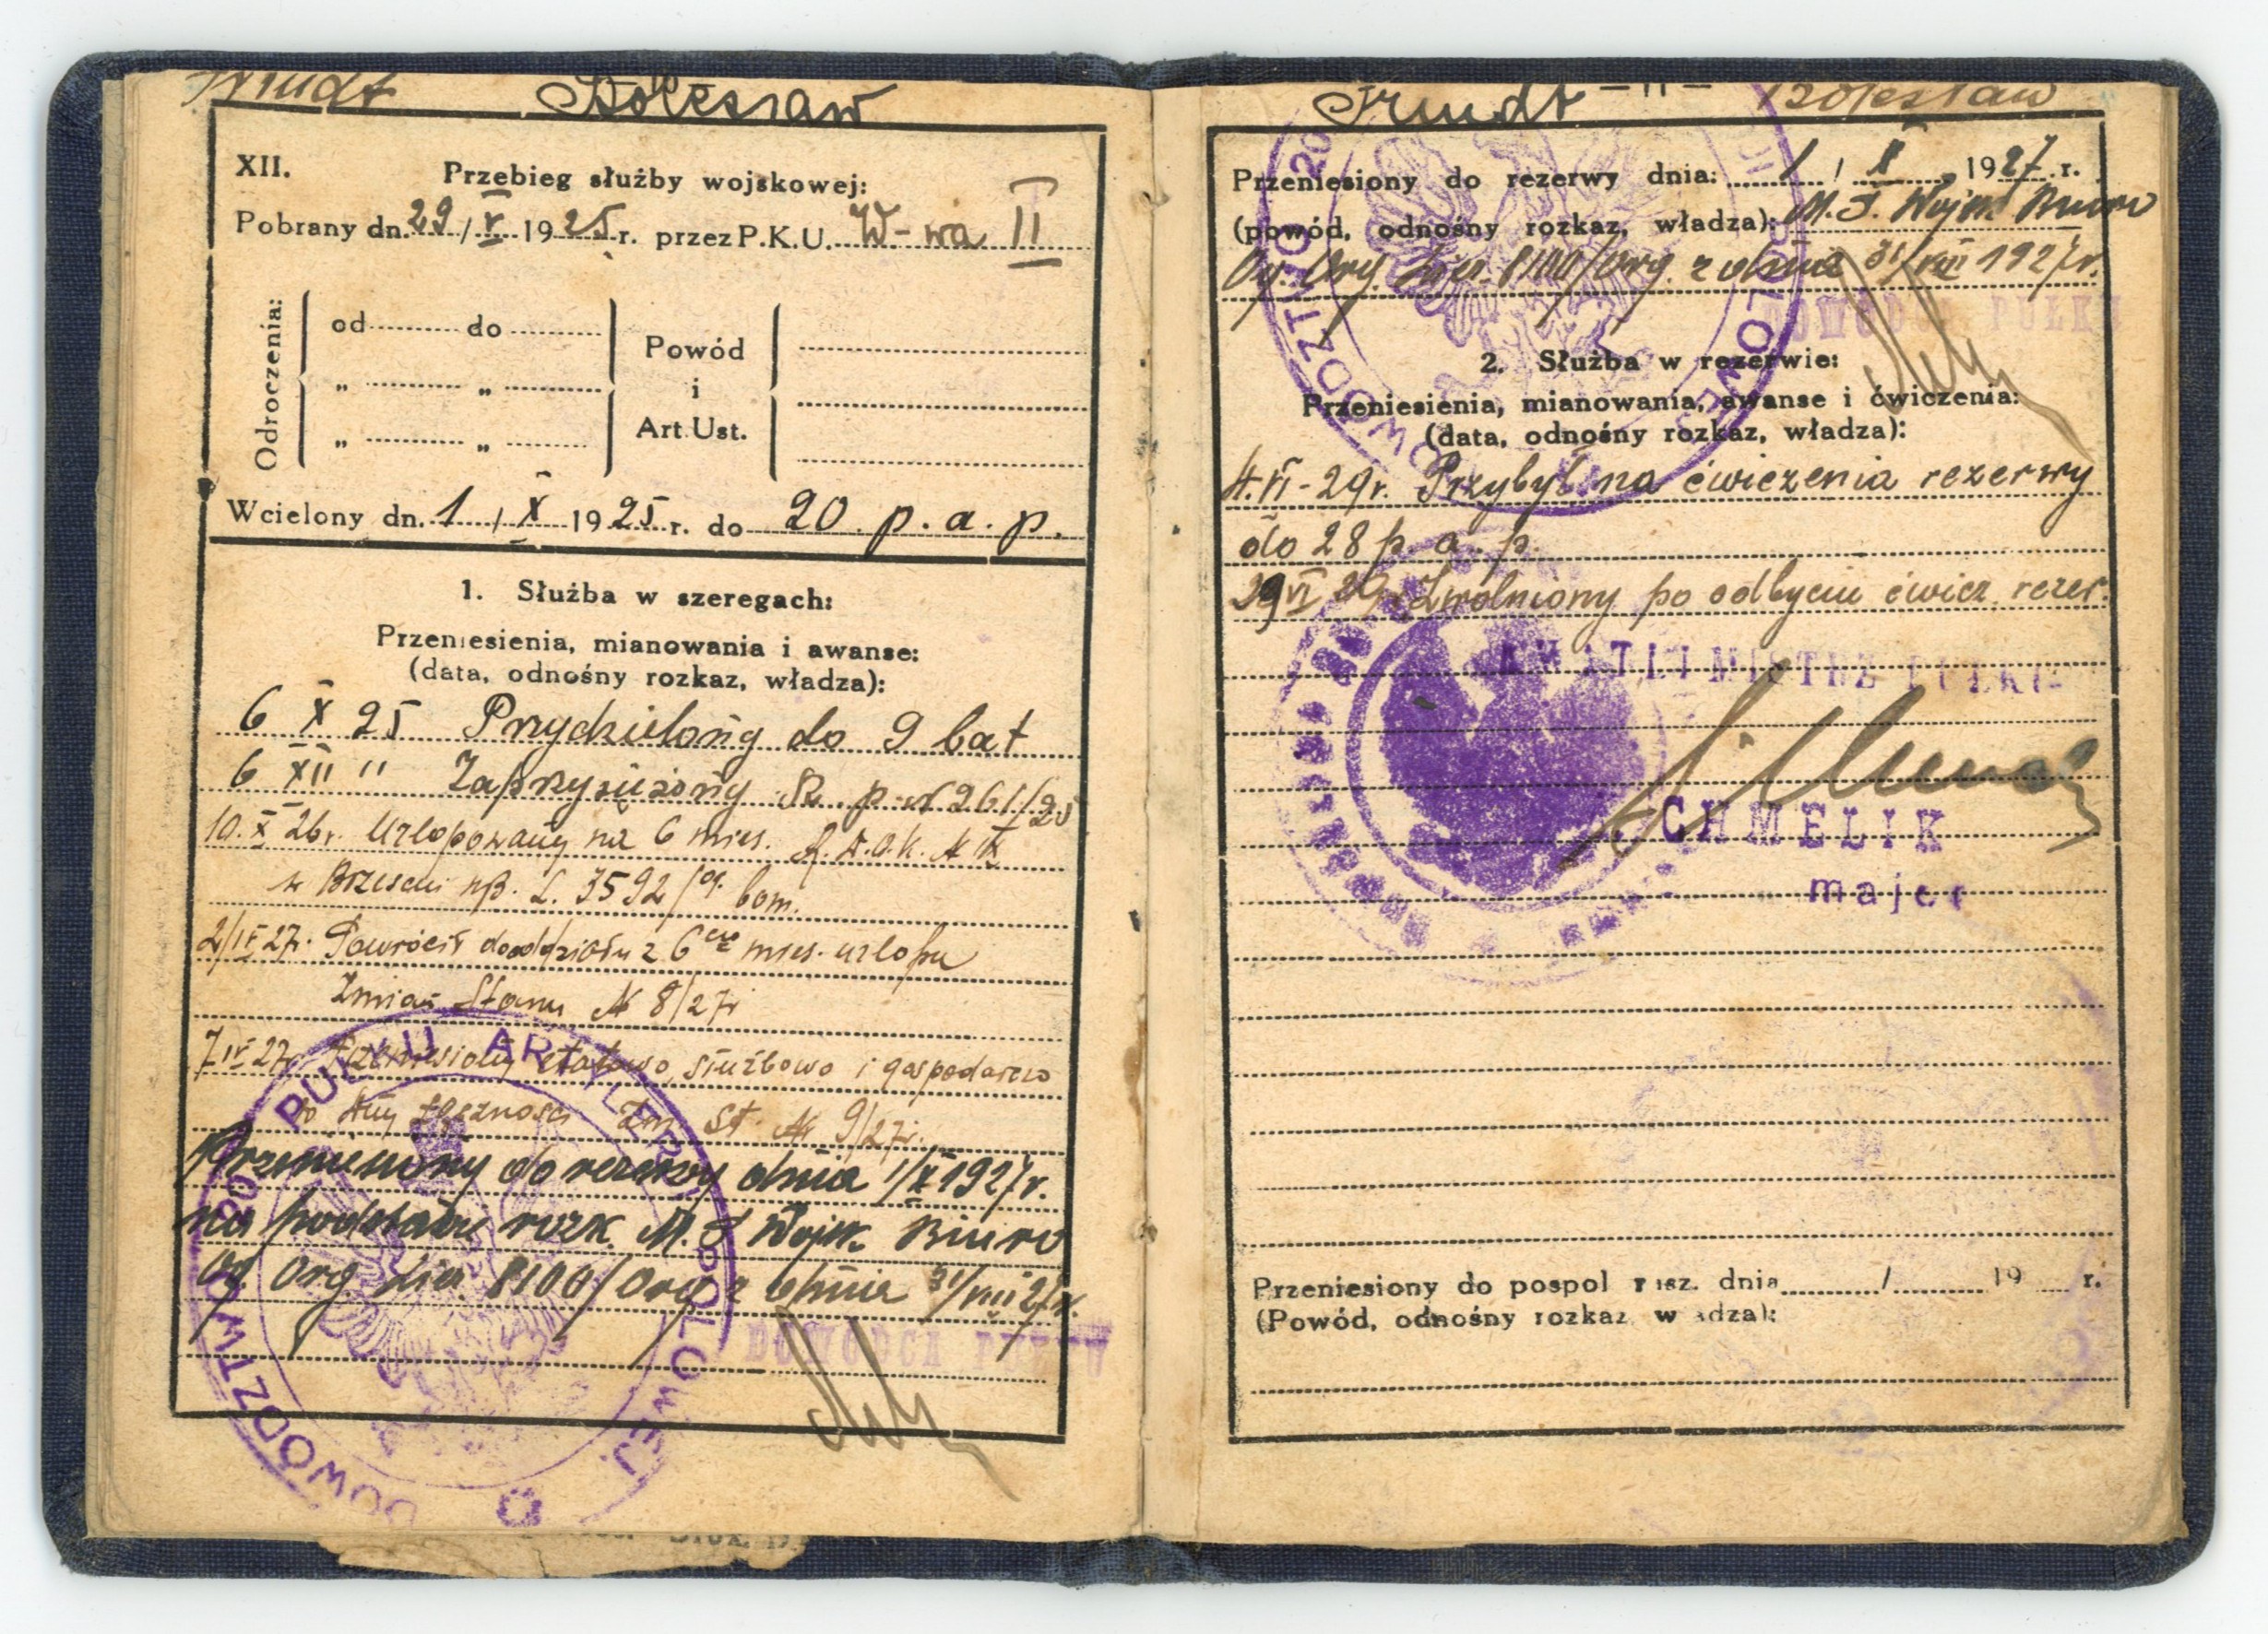 Bolesław
XII. Przebieg służby wojskowej:
Pobrany dn. 29 / V 1925 r. przez P.K.U. W-wa II
Odroczenia:
od do
„ „
„ „
Powód
i
Art. Ust.
Wcielony dn. 1 / X 1925 r. do 20. p. a. p.
1. Służba w szeregach:
Przeniesienia, mianowania i awanse:
(data, odnośny rozkaz, władza):
6 X 25 Przydzielony do 9 bat
6 XII " Zaprzysiężony R. p. N 261/25
10. X 26r. Urlopowany na 6 mies. N IX
w Brześciu n/B. L. 3592/og. bom.
2/IV 27r. Powrócił do oddziału z 6 cio mies. urlopu
Zmian Stanu N 8/27r
7 IV 27r. Przeniesiony etatowo, służbowo i gospodarczo
do łączności Zm. St. N 9/27r.
Przeniesiony do rezerwy dnia 1/X 1927 r.
na podstawie rozk. M. S. Wojsk. Biuro
Og. Org. Licz. 8100/Org z dnia 31/VIII 27 r.
DOWÓDCA PUŁKU
DOWÓDZTWO 20 PUŁKU ARTYLERJI POLOWEJ
Bolesław
Przeniesiony do rezerwy dnia: 1 / X 1927 r.
(powód, odnośny rozkaz, władza): M. S. Wojsk Biuro
Og. Org. Licz. 8100/Org. z dnia 31/VIII 1927 r.
DOWÓDCA PUŁKU
2. Służba w rezerwie:
Przeniesienia, mianowania, awanse i ćwiczenia:
(data, odnośny rozkaz, władza):
4. VI - 29 r. Przybył na ćwiczenia rezerwy
do 28 p. a. p.
29 VI 29 r. Zwolniony po odbyciu ćwicz. rezer.
KWATERMISTRZ PUŁKU
CHMELIK
major
Przeniesiony do pospol rusz. dnia / 19 r.
(Powód, odnośny rozkaz władza):